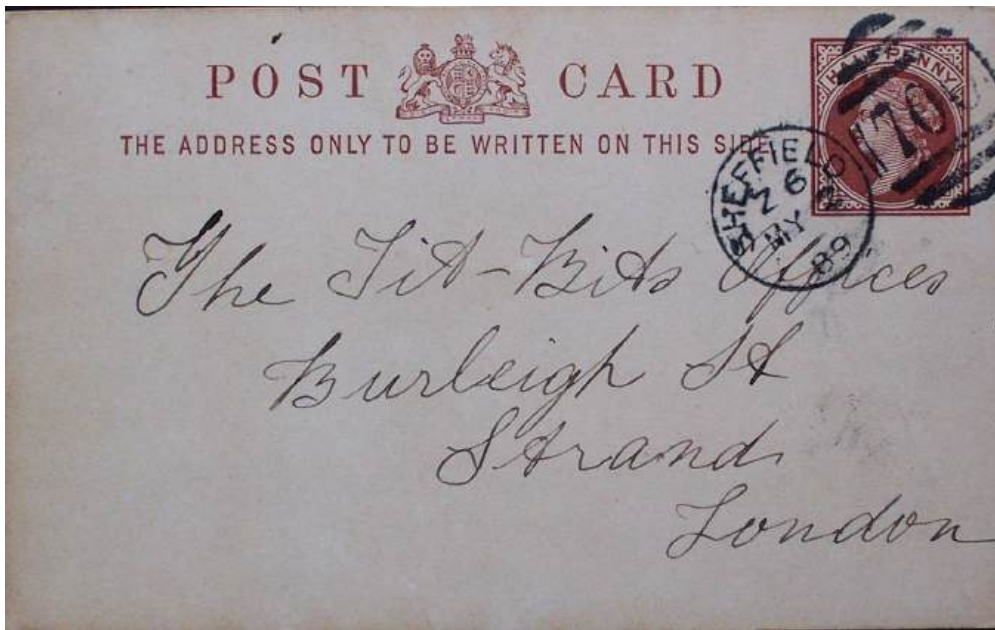 POST CARD
THE ADDRESS ONLY TO BE WRITTEN ON THIS SIDE
HALFPENNY
SHEFFIELD
Z 6
MY
89
The Tit-Bits Offices
Burleigh St
Strand
London